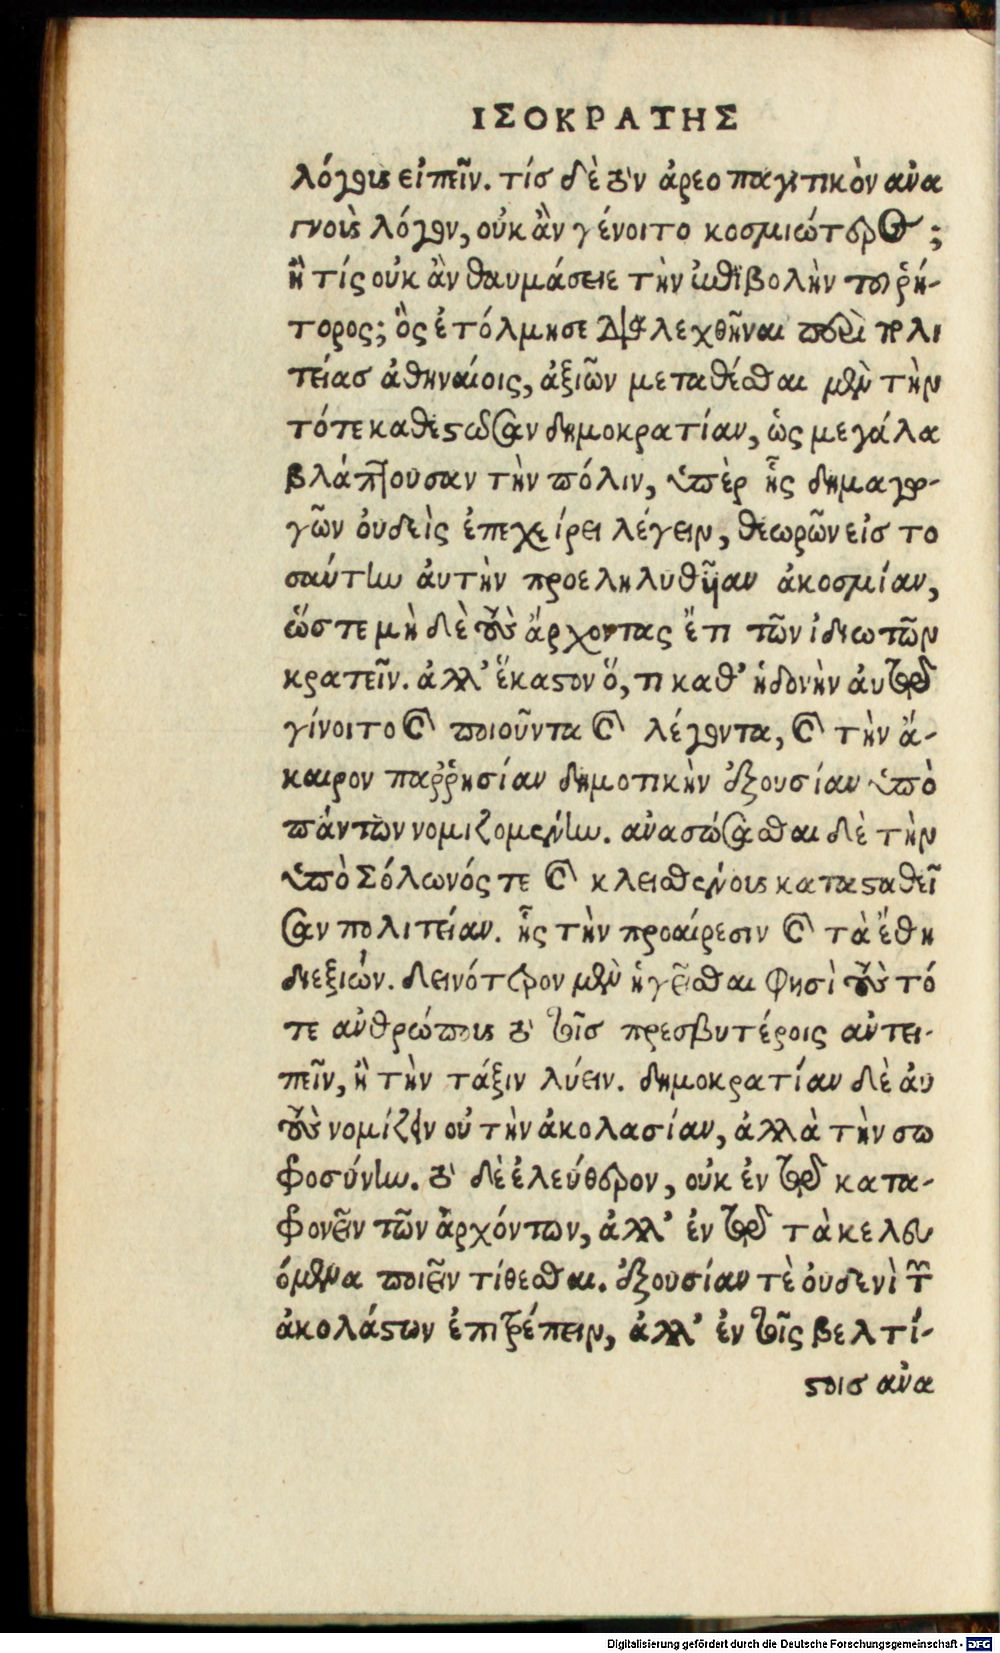 ΙΣΟΚΡΑΤΗΣ
λόγοις εἰπεῖν. τίσ δὲ τὸν ἀρεοπαγιτικὸν ἀνα
γνοὺς λόγον, οὐκ ἂν γένοιτο κοσμιώτερος;
ἢ τίς οὐκ ἂν θαυμάσειε τὴν ἐπιβολὴν τοῦ ῥή-
τορος; ὃς ἐτόλμησε διαλεχθῆναι περὶ πολι
τείασ ἀθηναίοις, ἀξιῶν μεταθέσθαι μὲν τὴν
τότε καθεστῶσαν δημοκρατίαν, ὡς μεγάλα
βλάπτουσαν τὴν πόλιν, ὑπὲρ ἧς δημαγω-
γῶν ὀυδεὶς ἐπεχείρει λέγειν, θεωρῶν εἰσ το
σαύτην ἀυτὴν προεληλυθῆαν ἀκοσμίαν,
ὥστε μὴ δὲ τοὺς ἄρχοντας ἔτι τῶν ἰδιωτῶν
κρατεῖν. ἀλλ’ ἕκαστον ὅ, τι καθ’ ἡδονὴν ἀυτῶ
γίνοιτο καὶ ποιοῦντα καὶ λέγοντα, καὶ τὴν ἄ-
καιρον παῤῥησίαν δημοτικὴν ἐξουσίαν ὑπὸ
πάντων νομιζομένην. ἀνασώσασθαι δὲ τὴν
ὑπὸ Σόλωνός τε καὶ κλεισθένους κατασταθεῖ
σαν πολιτείαν. ἧς τὴν προαίρεσιν καὶ τὰ ἔθη
διεξιών. δεινότερον μὲν ἡγεῖσθαι φησὶ τοὺς τό
τε ἀνθρώπους τὸ τοῖσ πρεσβυτέροις ἀντει-
πεῖν, ἢ τὴν τάξιν λύειν. δημοκρατίαν δὲ ἀυ
τοὺς νομίζειν οὐ τὴν ἀκολασίαν, ἀλλὰ τὴν σω
φροσύνην. τὸ δὲ ἐλεύθερον, οὐκ ἐν τῶ κατα-
φρονεῖν τῶν ἀρχόντων, ἀλλ’ ἐν τῶ τὰ κελευ
όμενα ποιεῖν τίθεσθαι. ἐξουσίαν τὲ ὀυδενὶ τῶν
ἀκολάστων ἐπιτρέπειν, ἀλλ’ ἐν τοῖς βελτί-
στοισ ἀνα
Digitalisierung gefördert durch die Deutsche Forschungsgemeinschaft - DFG